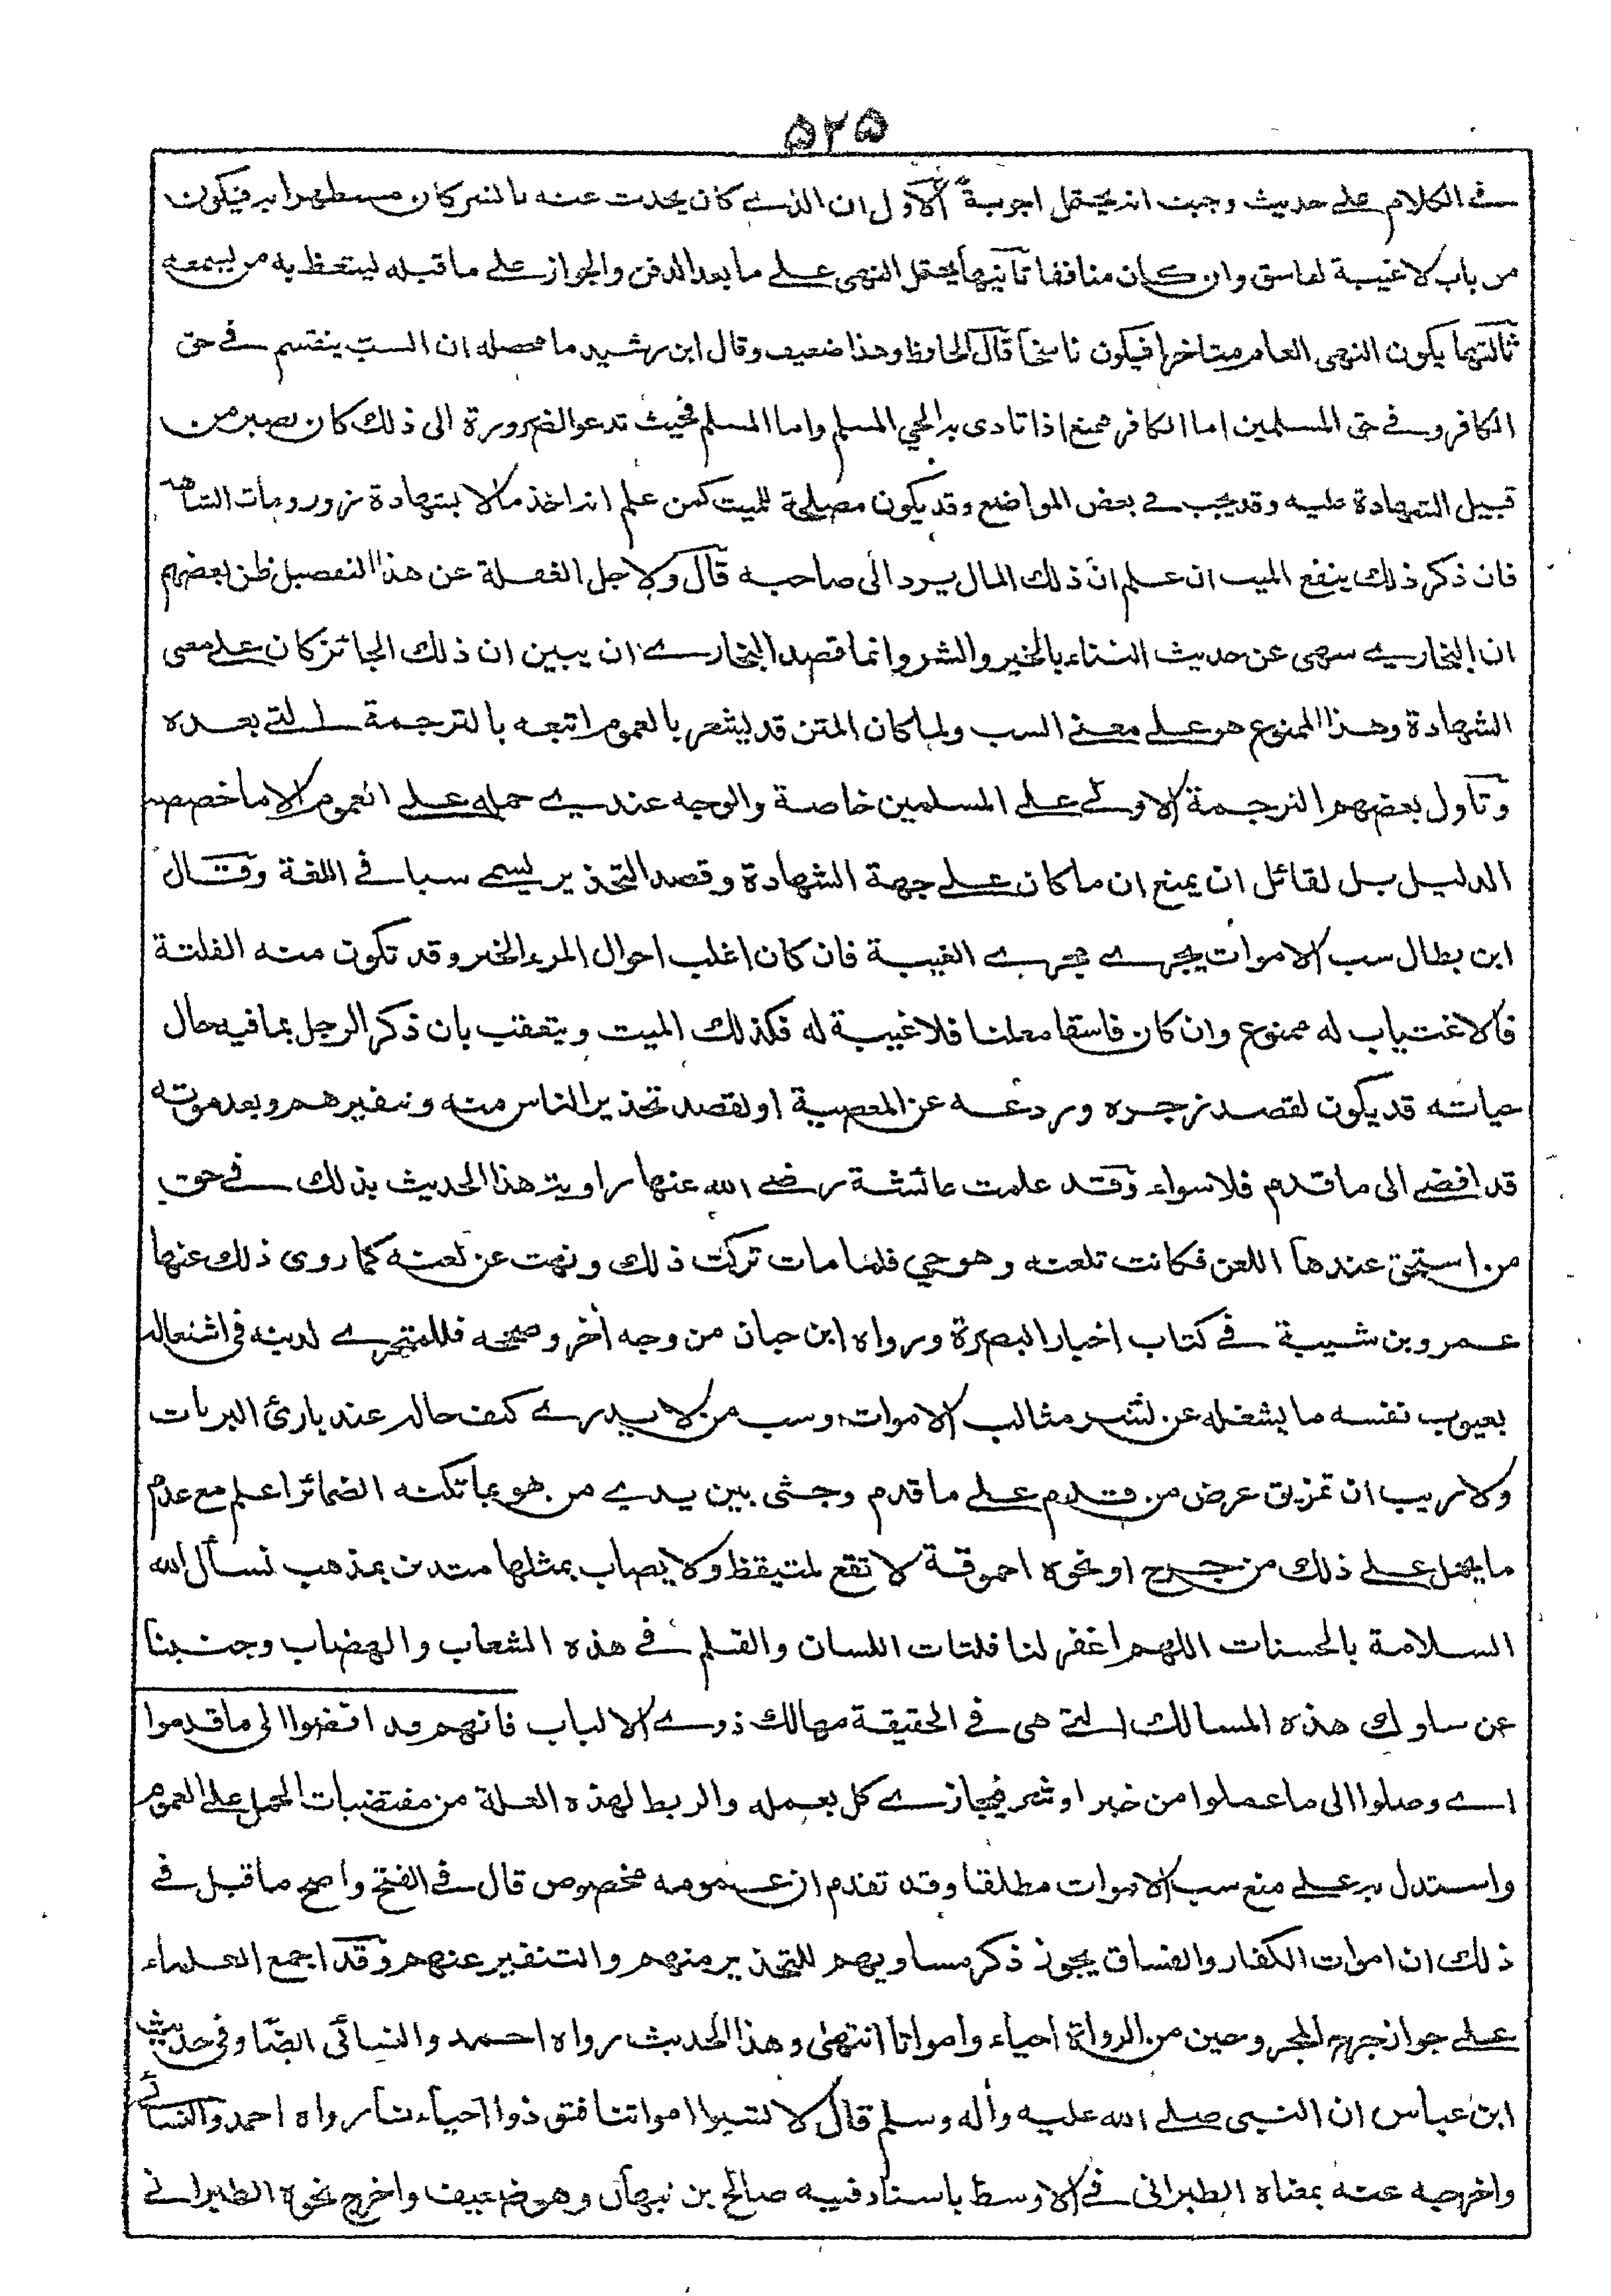 ۵۲۵
في الكلام على حديث وجبت انه يحتمل اجوبة الاول ان الذي كان يحدث عنه بالشر كان مستظهرا به فيكون
من باب لا غيبة لفاسق وان كان منافقا ثانيها يحتمل النهي على ما بعد الدفن والجواز على ما قبله ليتعظ به من يسمعه
ثالثها يكون النهي العام متاخرا فيكون ناسخا قال الحافظ وهذا ضعيف وقال ابن رشيد ما محصله ان السب ينقسم في حق
الكافر وفي حق المسلمين اما الكافر فمنع اذا تاذى به الحي المسلم واما المسلم فحيث تدعو الضرورة الى ذلك كان يصير من
قبيل الشهادة عليه وقد يجب في بعض المواضع وقد يكون مصلحة للميت كمن علم انه اخذ مالا بشهادة زور ومات الشاهد
فان ذكر ذلك ينفع الميت ان علم ان ذلك المال يرد الى صاحبه قال ولاجل الغفلة عن هذا التفصيل ظن بعضهم
ان البخاري سهى عن حديث الثناء بالخير والشر وانما قصد البخاري ان يبين ان ذلك الجائز كان على معنى
الشهادة وهذا الممنوع هو على معنى السب ولما كان المتن قد يشعر بالعموم اتبعه بالترجمة التي بعده
وتاول بعضهم الترجمة الاولى على المسلمين خاصة والوجه عندي حمله على العموم الا ما خصصه
الدليل بل لقائل ان يمنع ان ما كان على جهة الشهادة وقصد التحذير يسمى سبا في اللغة وقال
ابن بطال سب الاموات يجري مجرى الغيبة فان كان اغلب احوال المرء الخير وقد تكون منه الفلتة
فالاغتياب له ممنوع وان كان فاسقا معلنا فلا غيبة له فكذلك الميت ويتعقب بان ذكر الرجل بما فيه حال
حياته قد يكون لقصد زجره وردعه عن المعصية او لقصد تحذير الناس منه وتنفيرهم وبعد موته
قد افضى الى ما قدم فلا سواء وقد علمت عائشة رضي الله عنها راوية هذا الحديث بذلك في حق
من استحق عندها اللعن فكانت تلعنه وهو حي فلما مات تركت ذلك ونهت عن لعنه كما روى ذلك عنها
عمرو بن شيبة في كتاب اخبار البصرة ورواه ابن حبان من وجه أخر وصححه فللمتحري لدينه في اشتغاله
بعيوب نفسه ما يشغله عن نشر مثالب الاموات وسب من لا يدري كيف حاله عند بارئ البريات
ولا ريب ان تمزيق عرض من قدم على ما قدم وجثى بين يدي من هو بما تكنه الضمائر اعلم مع عدم
ما يحمل على ذلك من جرح او نحوه احموقة لا تقع لمتيقظ ولا يصاب بمثلها متدين بمذهب نسأل الله
السلامة بالحسنات اللهم اغفر لنا فلتات اللسان والقلم في هذه الشعاب والهضاب وجنبنا
عن سلوك هذه المسالك التي هي في الحقيقة مهالك ذوي الالباب فانهم قد افضوا الى ما قدموا
اي وصلوا الى ما عملوا من خير او شر فيجازى كل بعمله والربط لهذه العلة من مقتضيات الحمل على العموم
واستدل به على منع سب الاموات مطلقا وقد تقدم ان عمومه مخصوص قال في الفتح واصح ما قيل في
ذلك ان اموات الكفار والفساق يجوز ذكر مساويهم للتحذير منهم والتنفير عنهم وقد اجمع العلماء
على جواز جرح المجروحين من الرواة احياء وامواتا انتهى وهذا الحديث رواه احمد والنسائي ايضا وفي حديث
ابن عباس ان النبي صلى الله عليه وأله وسلم قال لا تسبوا امواتنا فتؤذوا احياءنا رواه احمد والنسائي
واخرجه عنه بمعناه الطبراني في الاوسط باسناد فيه صالح بن نبهان وهو ضعيف واخرج نحوه الطبراني